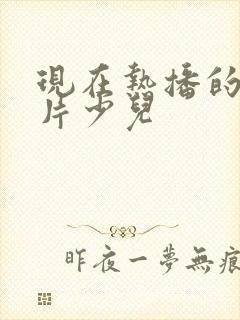 現在熱播的
片少兒
昨夜一夢無痕